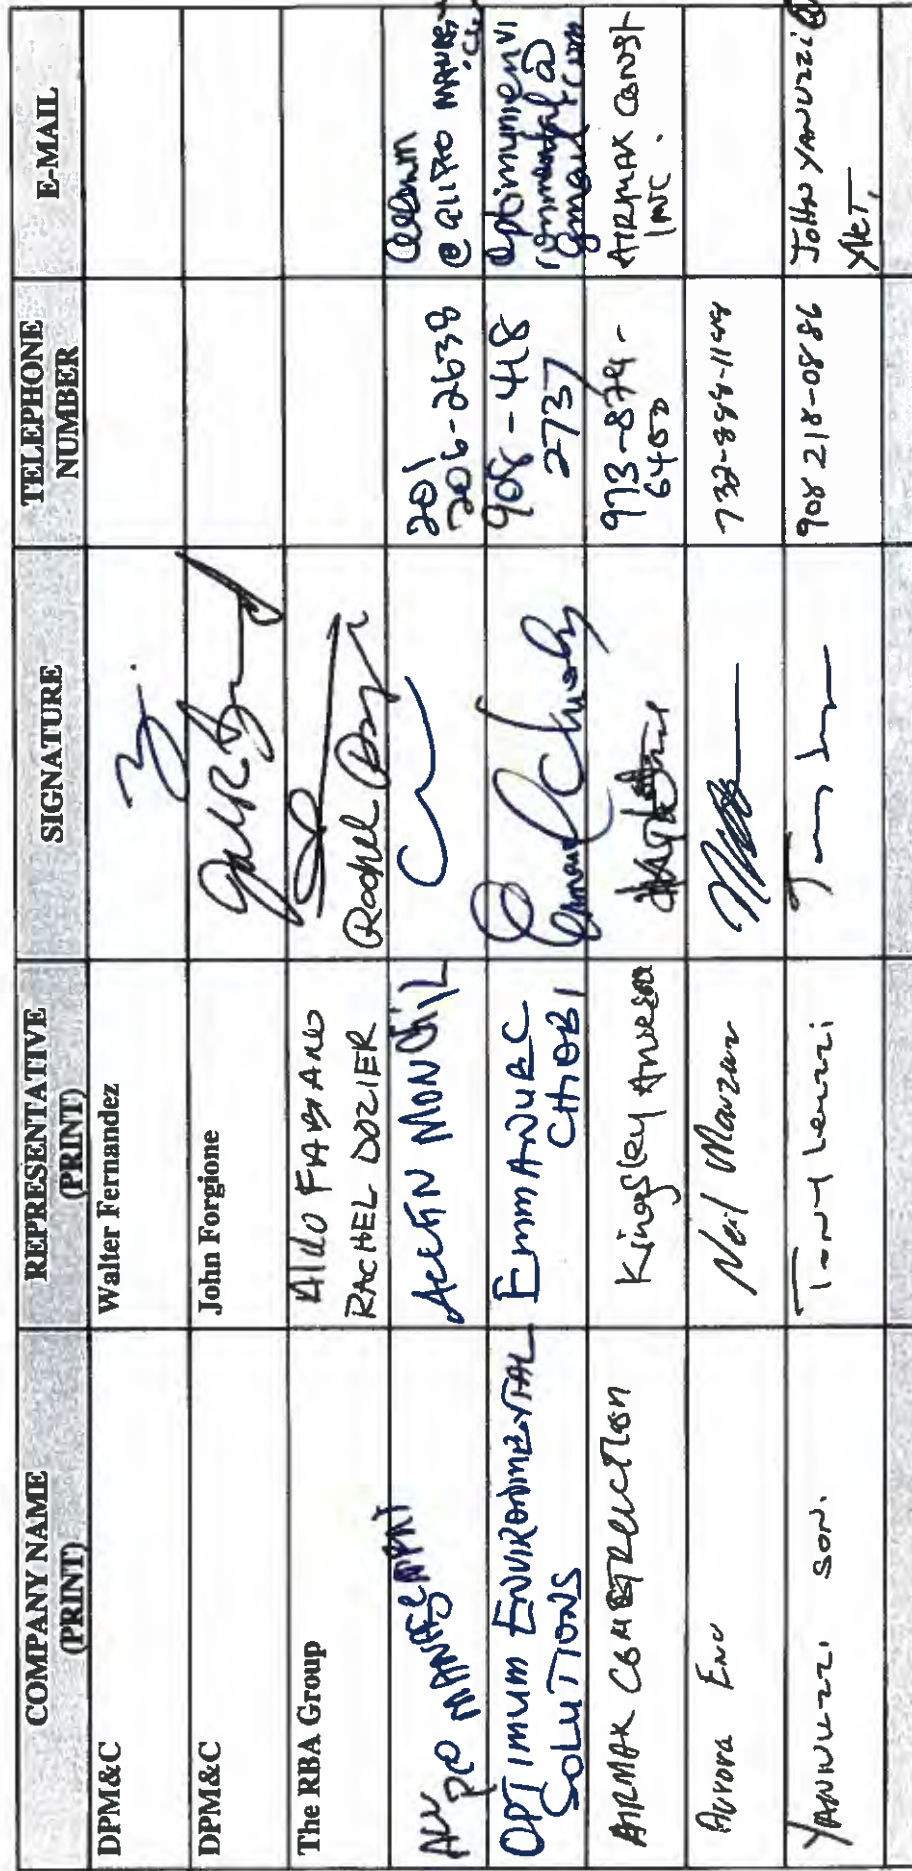 COMPANY NAME
(PRINT)
REPRESENTATIVE
(PRINT)
SIGNATURE
TELEPHONE
NUMBER
E-MAIL
DPM&C
Walter Fernandez
DPM&C
John Forgione
The RBA Group
Aldo FABIANO
RACHEL DOZIER
Rachel
PRO MANAGEMENT
201
206-2638
@ AllPRO
OPTIMUM ENVIRONMENTAL
SOLUTIONS
EmmANUEL
CHOBI
908-418
2737
optimumenvi
ronmental @
gmail.com
AIRMAK CONSTRUCTION
Kingsley
973-879-
6450
AIRMAK Const
INC.
Aurora Env
Neil
YANNUZZI SON.
Tony Lenzi
908 218-0886
John YANUZZI @